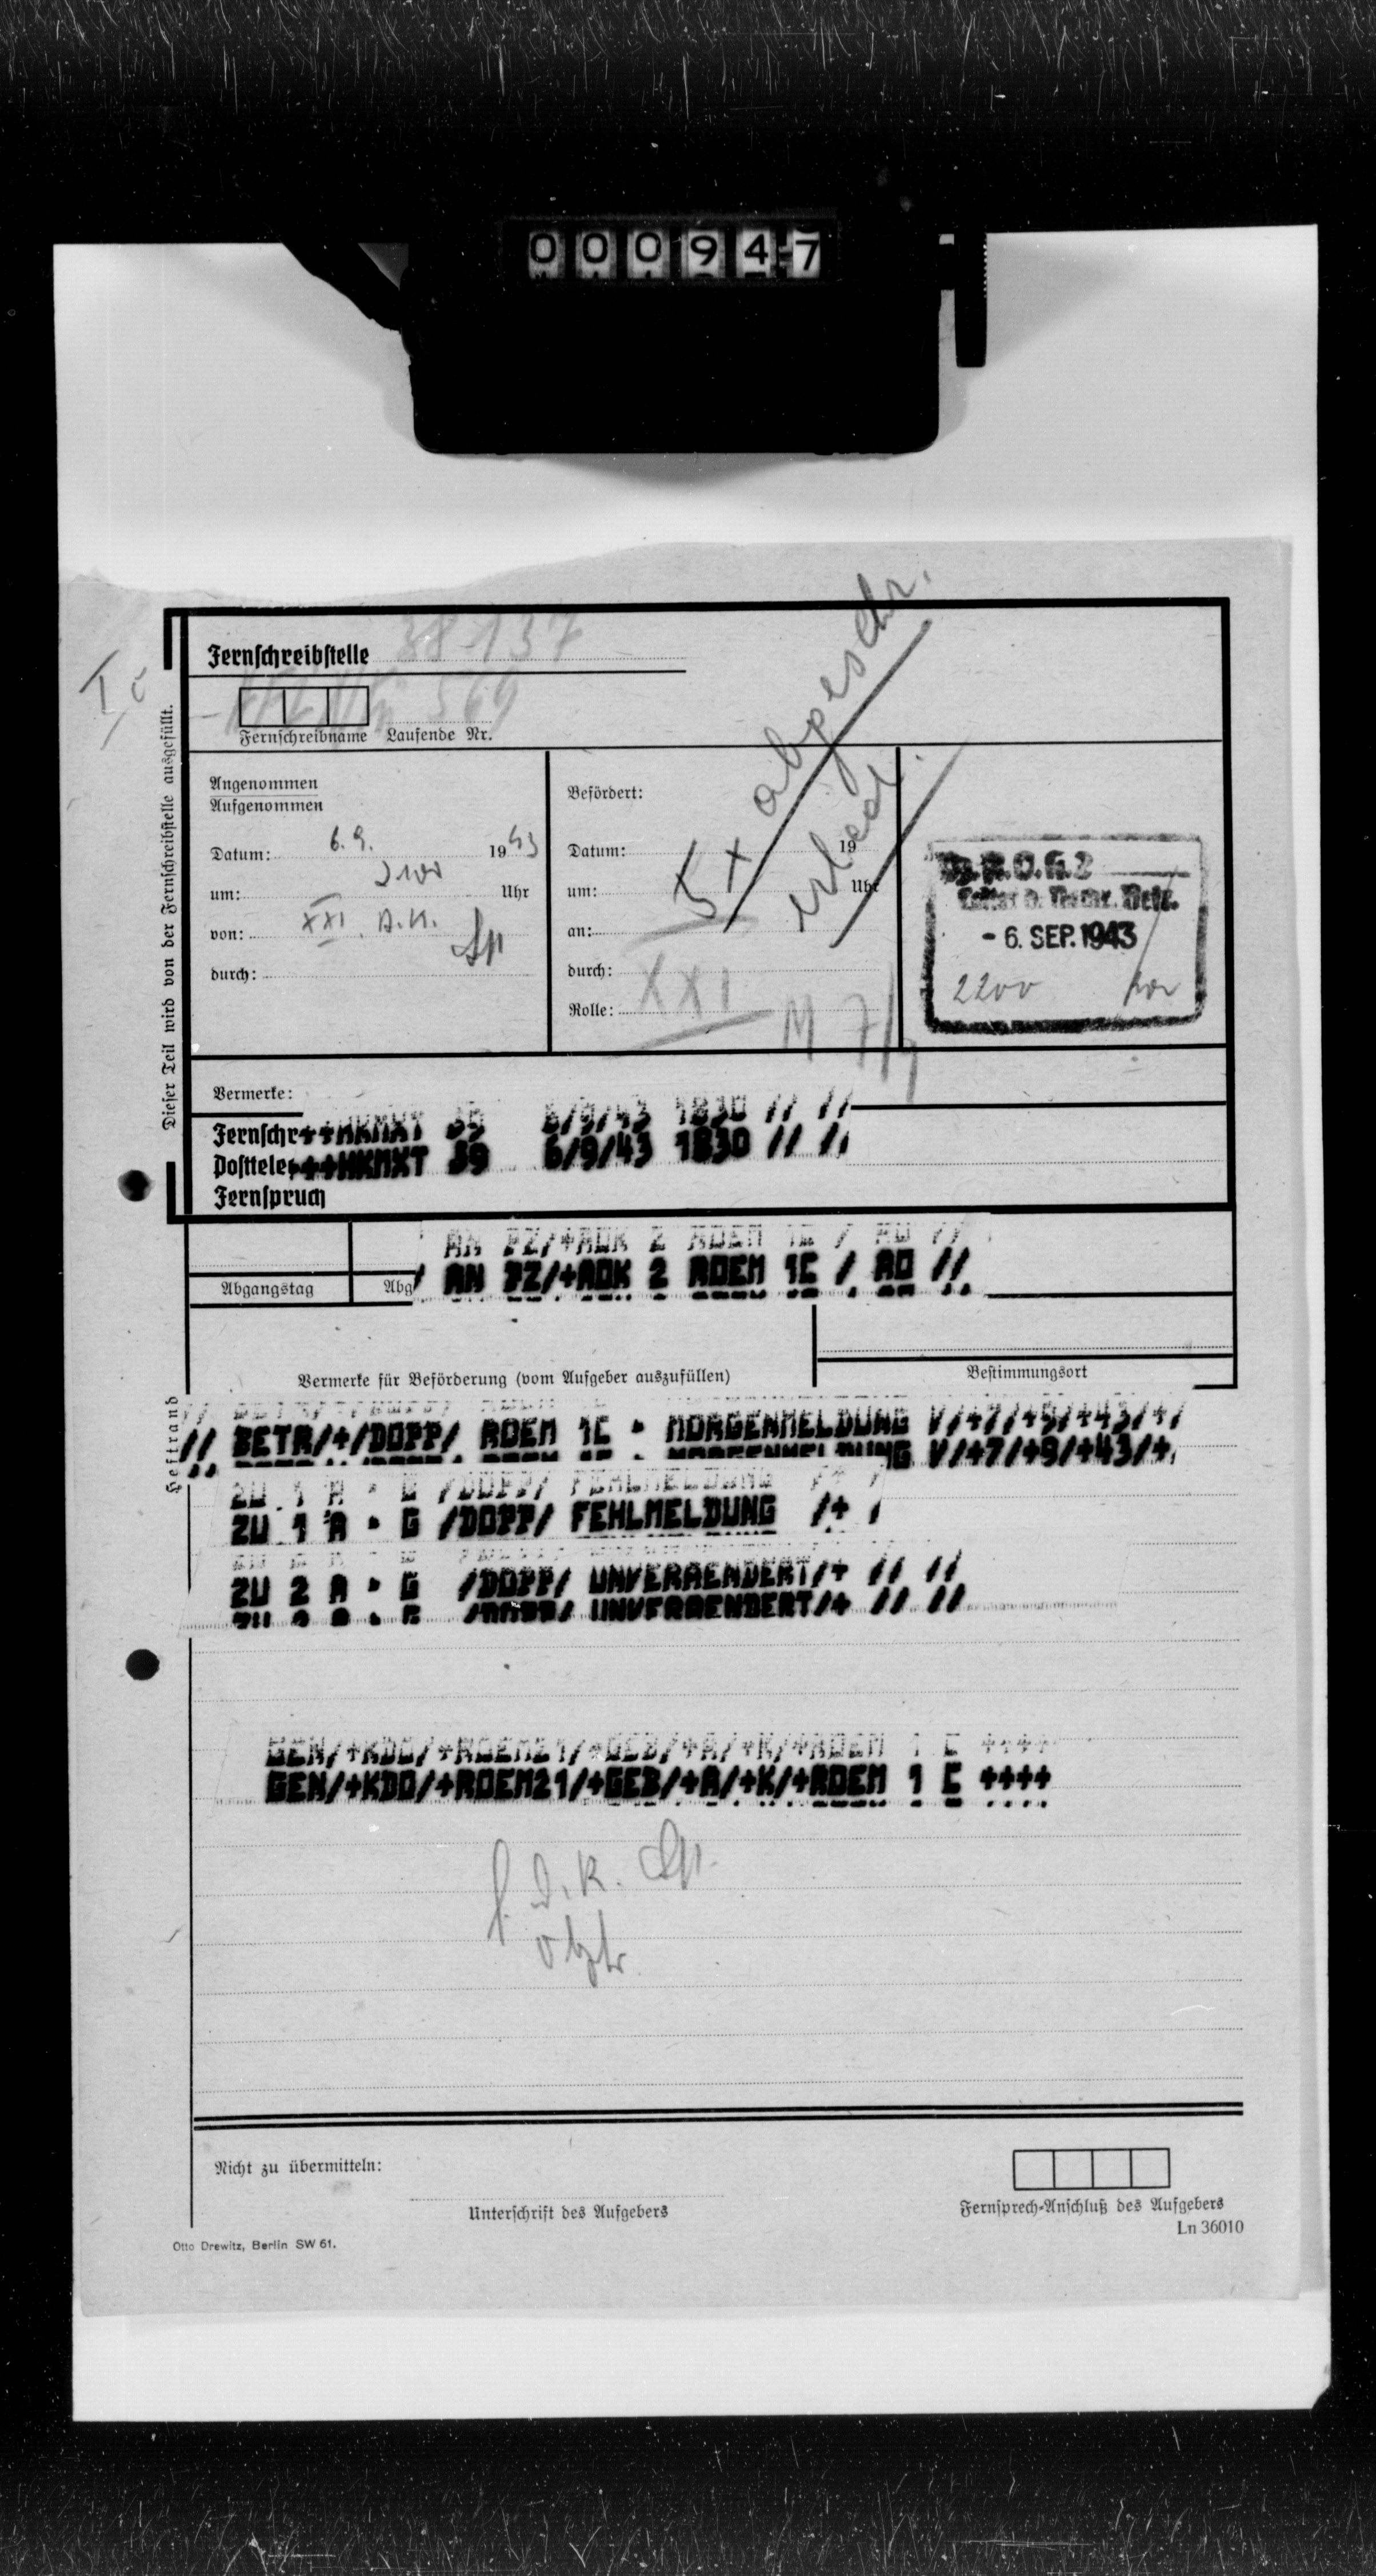 000947
Ic
Fernschreibstelle 38-137
569
Fernschreibname Laufende Nr.
Dieser Teil wird von der Fernschreibstelle ausgefüllt.
Angenommen
Aufgenommen
Datum: 6.9. 1943
um: 2100 Uhr
von: XXI. A.K.
durch:
Befördert:
Datum: 19
um: Uhr
an:
durch:
Rolle:
5x abgeschr.
erled.
XXI
- 6. SEP. 1943
2200
Vermerke:
Fernschr++HKMXT 39 6/9/43 1830 // //
Posttele+++HKMXT 39 6/9/43 1830 // //
Fernspruch
/ AN PZ/+AOK 2 ROEM 1C / AO //
Abgangstag Abg
Vermerke für Beförderung (vom Aufgeber auszufüllen)
Bestimmungsort
Heftrand
// BETR/+/DOPP/ ROEM 1C - MORGENMELDUNG V/+7/+9/+43/+/
ZU 1 A - G /DOPP/ FEHLMELDUNG /+ /
ZU 2 A - G /DOPP/ UNVERAENDERT/+ // //
GEN/+KDO/+ROEM21/+GEB/+A/+K/+ROEM 1 C ++++
f. d. R.
Nicht zu übermitteln:
Unterschrift des Aufgebers
Fernsprech-Anschluß des Aufgebers
Ln 36010
Otto Drewitz, Berlin SW 61.